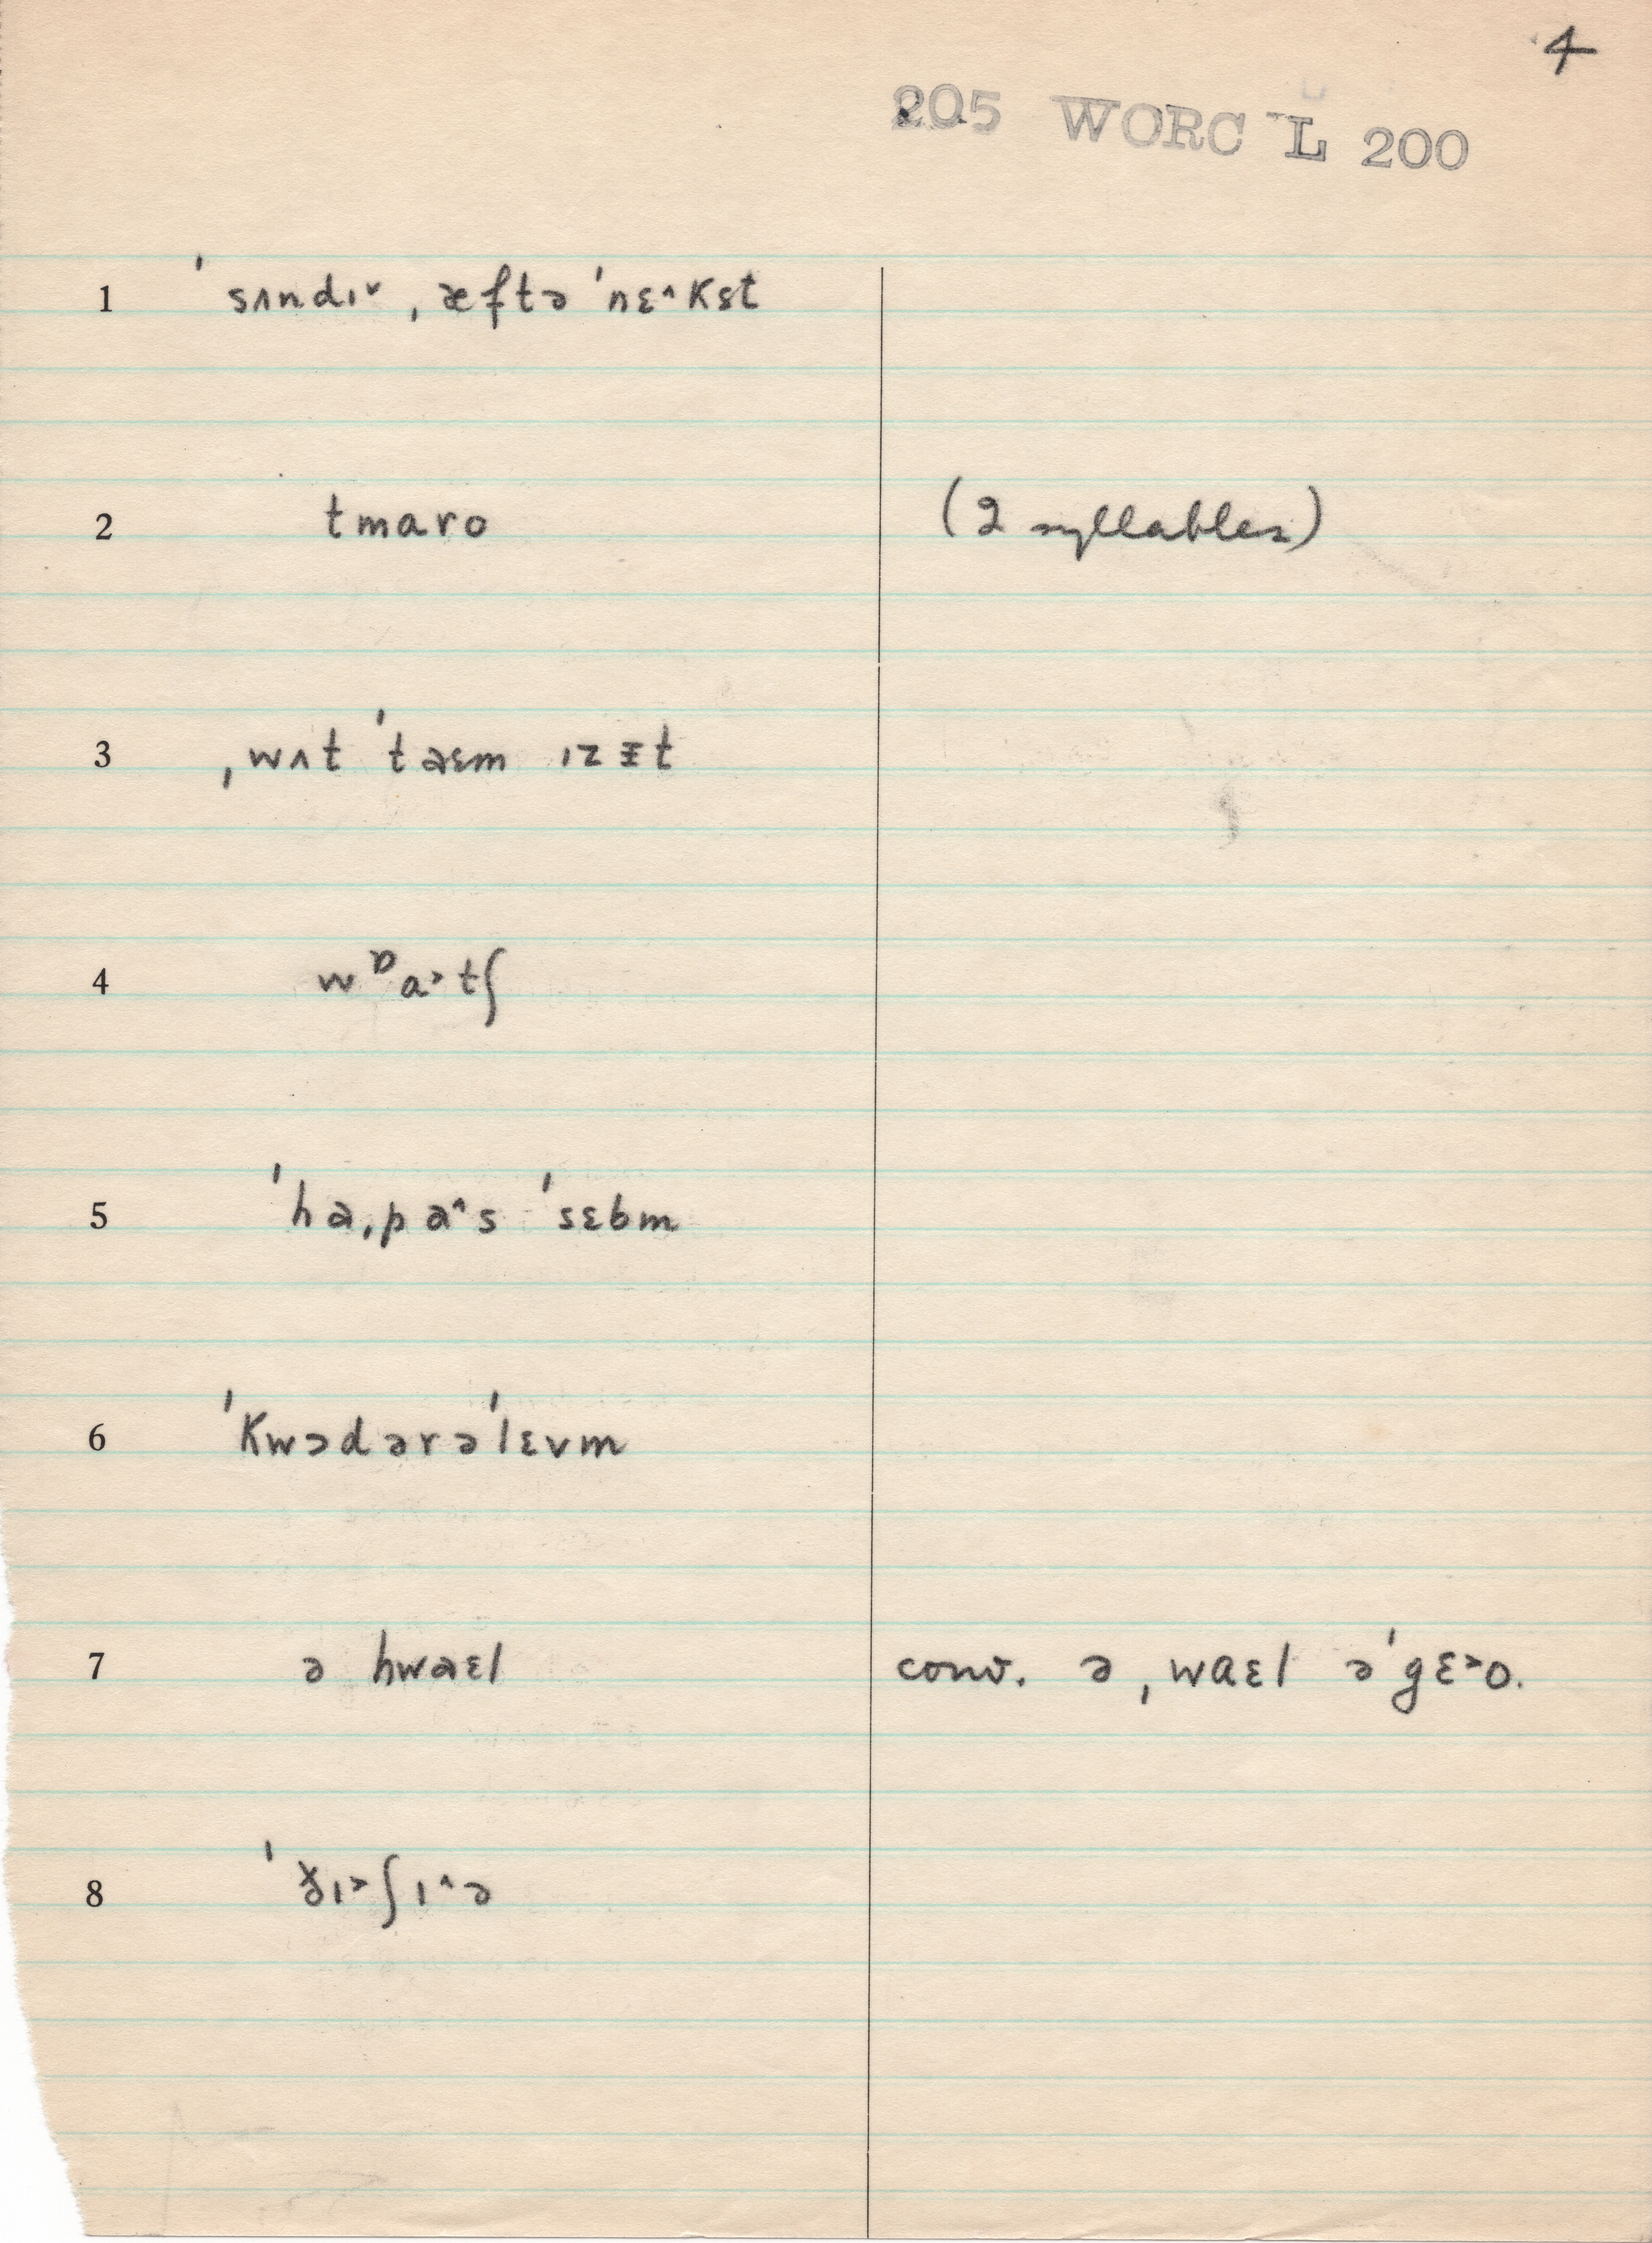 4
205 WORC L 200
1 ˈsʌndɪ˅ ˌæftə ˈnɛ˄kst
2 tmaro (2 syllables)
3 ˌwʌt ˈtaɛm ɪz ɪt
4 wᶛa˃tʃ
5 ˈhaˌpa˄s ˈsɛbm
6 ˈkwɔdərəˈlɛvm
7 ə hwaɛl conv. ə ˌwaɛl əˈgɛ˃o.
8 ɪ˃ʃɪ˄ə